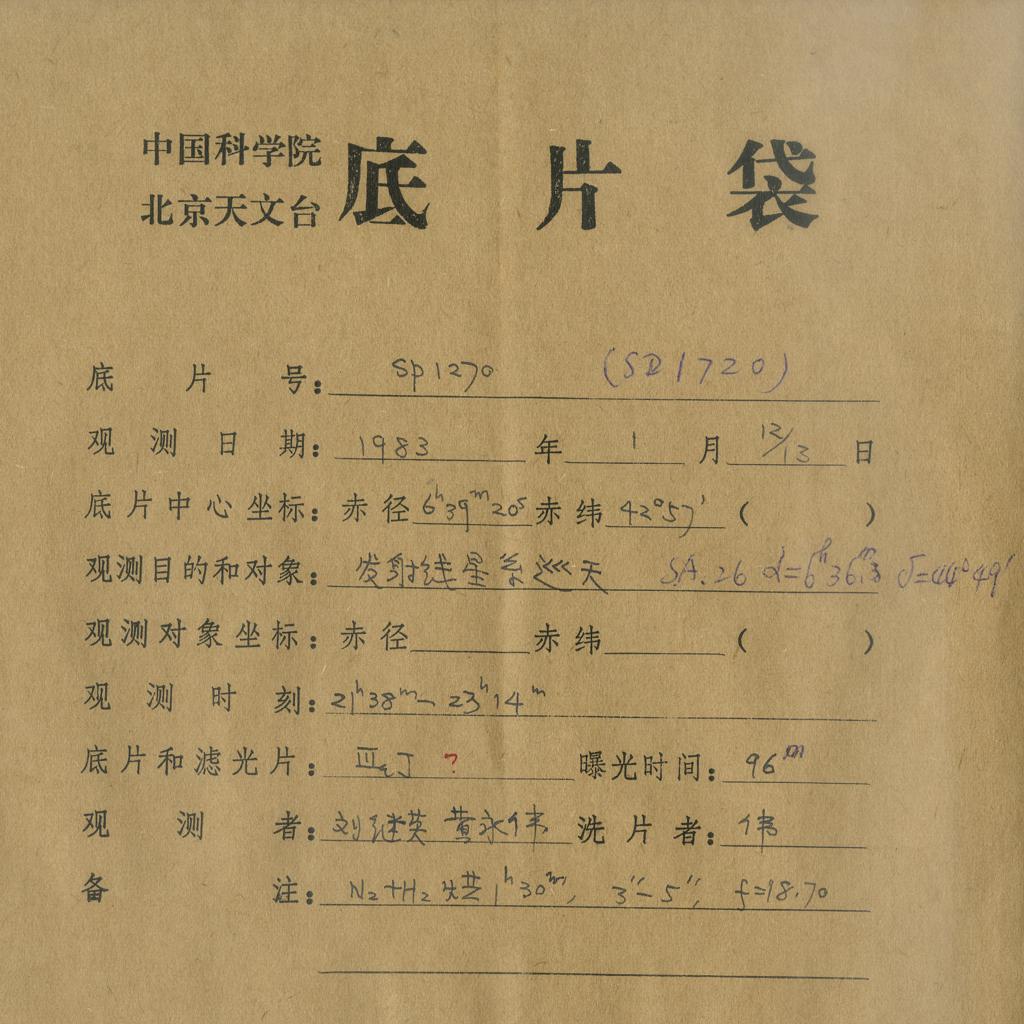 中国科学院
北京天文台 底片袋
底片号: Sp1270 (SP1720)
观测日期: 1983 年 1 月 12/13 日
底片中心坐标: 赤径 6h39m20s 赤纬 42°57' ( )
观测目的和对象: 发射线星系巡天 SA.26 α=6h36m.3 δ=44°49'
观测对象坐标: 赤径 赤纬 ( )
观测时刻: 21h38m—23h14m
底片和滤光片: ⅢaJ ? 曝光时间: 96m
观测者: 刘继英 黄永伟 洗片者: 伟
备注: N2+H2 1h30m, 3"–5", f=18.70